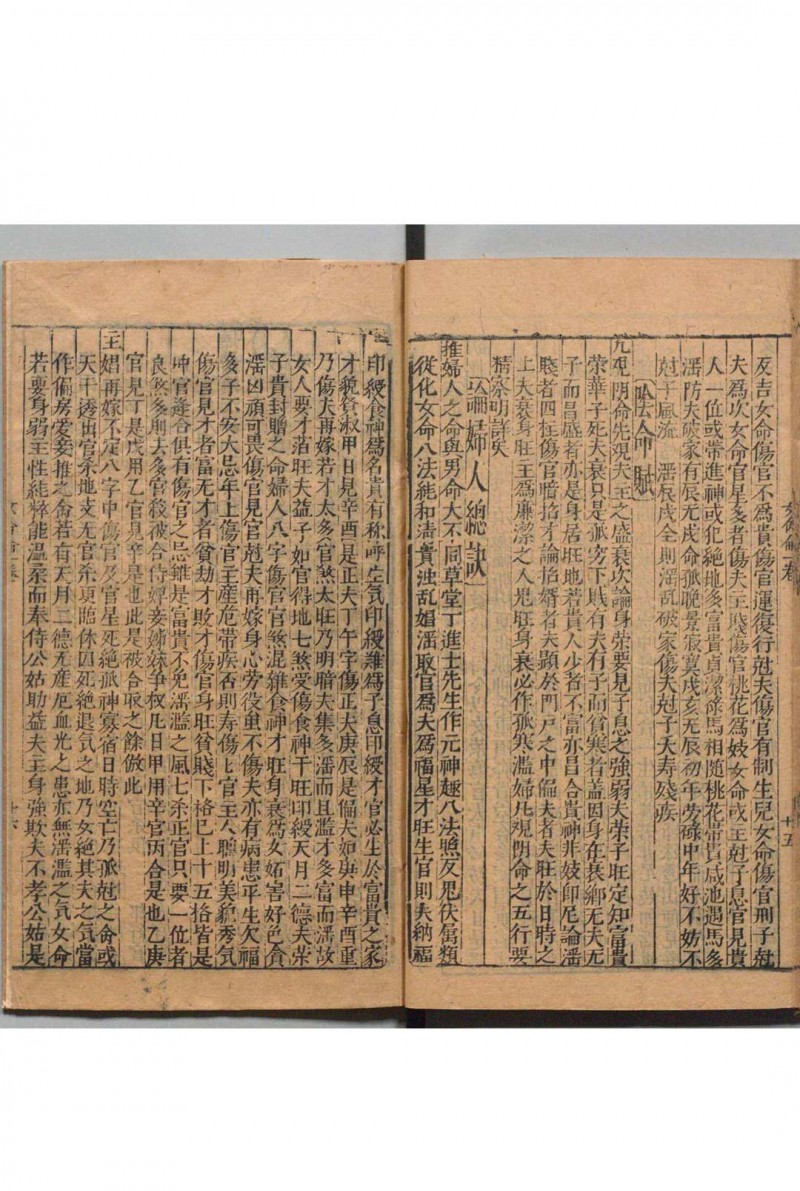 反吉女命傷官不爲貴傷官運復行尅夫傷官有制生兒女命傷官刑子尅
夫爲次女命官星多者傷夫主殘傷官桃花爲妓女命或主尅子息官見貴
人一位或帶進神或犯絶地多富貴貞潔祿馬相隨桃花富貴咸池遇馬多
滛防夫破家有辰无戌命孤晚景寂寞戌亥无辰初年勞碌中年好不妨不
尅子風流 滛辰戌全則滛乱破家傷夫尅子夭寿殘疾
隂命賦
九覌阴命先覌夫主之盛衰次論身荣要見子息之強弱夫荣子旺定知富貴
荣華子死夫衰只是孤穷下賎有夫有子而貧寒者盖因身在衰鄉无夫无
子而昌盛者亦是身居旺地若貴人少者不富亦昌合貴神非妓即尼論滛
賤者四柱傷官暗掐才論掐婿者夫顕於門戸之中偏夫者夫旺於日時之
上夫衰身旺主爲廉潔之人鬼旺身衰必作孤寒滥婦凡覌阴命之五行要
精察明詳矣
論婦人總訣
推婦人之命與男命大不同草堂丁進士先生作元神趣八法照反鬼伏属類
從化女命八法純和清貴浊乱娼滛取官爲夫爲福星才旺生官則夫納福
女命命卷 十五
印綬食神爲名貴有称呼生気印綬難爲子息印綬才官必生於富貴之家
才貌賢淑甲日見辛酉是正夫丁午字傷正夫庚辰是偏夫如庚申辛酉重
乃傷夫再嫁若才太多官煞太旺乃明暗夫集多滛而且滥才多富而滛故
女人要才薄旺夫益子如官得地七煞受傷食神干旺印綬天月二德夫荣
子貴封贈之命婦人八字傷官官煞混雜食神才旺身衰爲女妬害好色貪
滛凶頑可畏傷官見官尅夫再嫁身心勞役重不傷夫亦有病患平生欠福
多子不安大忌年上傷官主産危帶疾否則寿傷上官主人聰明美貌秀気
傷官見才者富无才者貧劫才敗才傷官身旺貧賤下格已上十五格皆是
坤官逢合俱有傷官之忌雖是富貴不免滛滥之風七杀正官只要一位者
良煞多則去多官殺被合侍婢妾姊妹争权凡日甲用辛官丙合是也乙庚
官見丁是戊用乙官見辛是也此是被合取之餘倣此
主娼再嫁不定八字中傷官及官星死絶孤神寡宿日時空亡乃孤尅之命或
天干透出官杀地支无官杀更臨休囚死絶退気之地乃女絶其夫之気當
作偏房愛妾推之命若有天月二德无産厄血光之患亦無滛滥之気女命
若要身弱主性純粹能温柔而奉侍公姑助益夫主身強欺夫不孝公姑是
女命命卷 十六